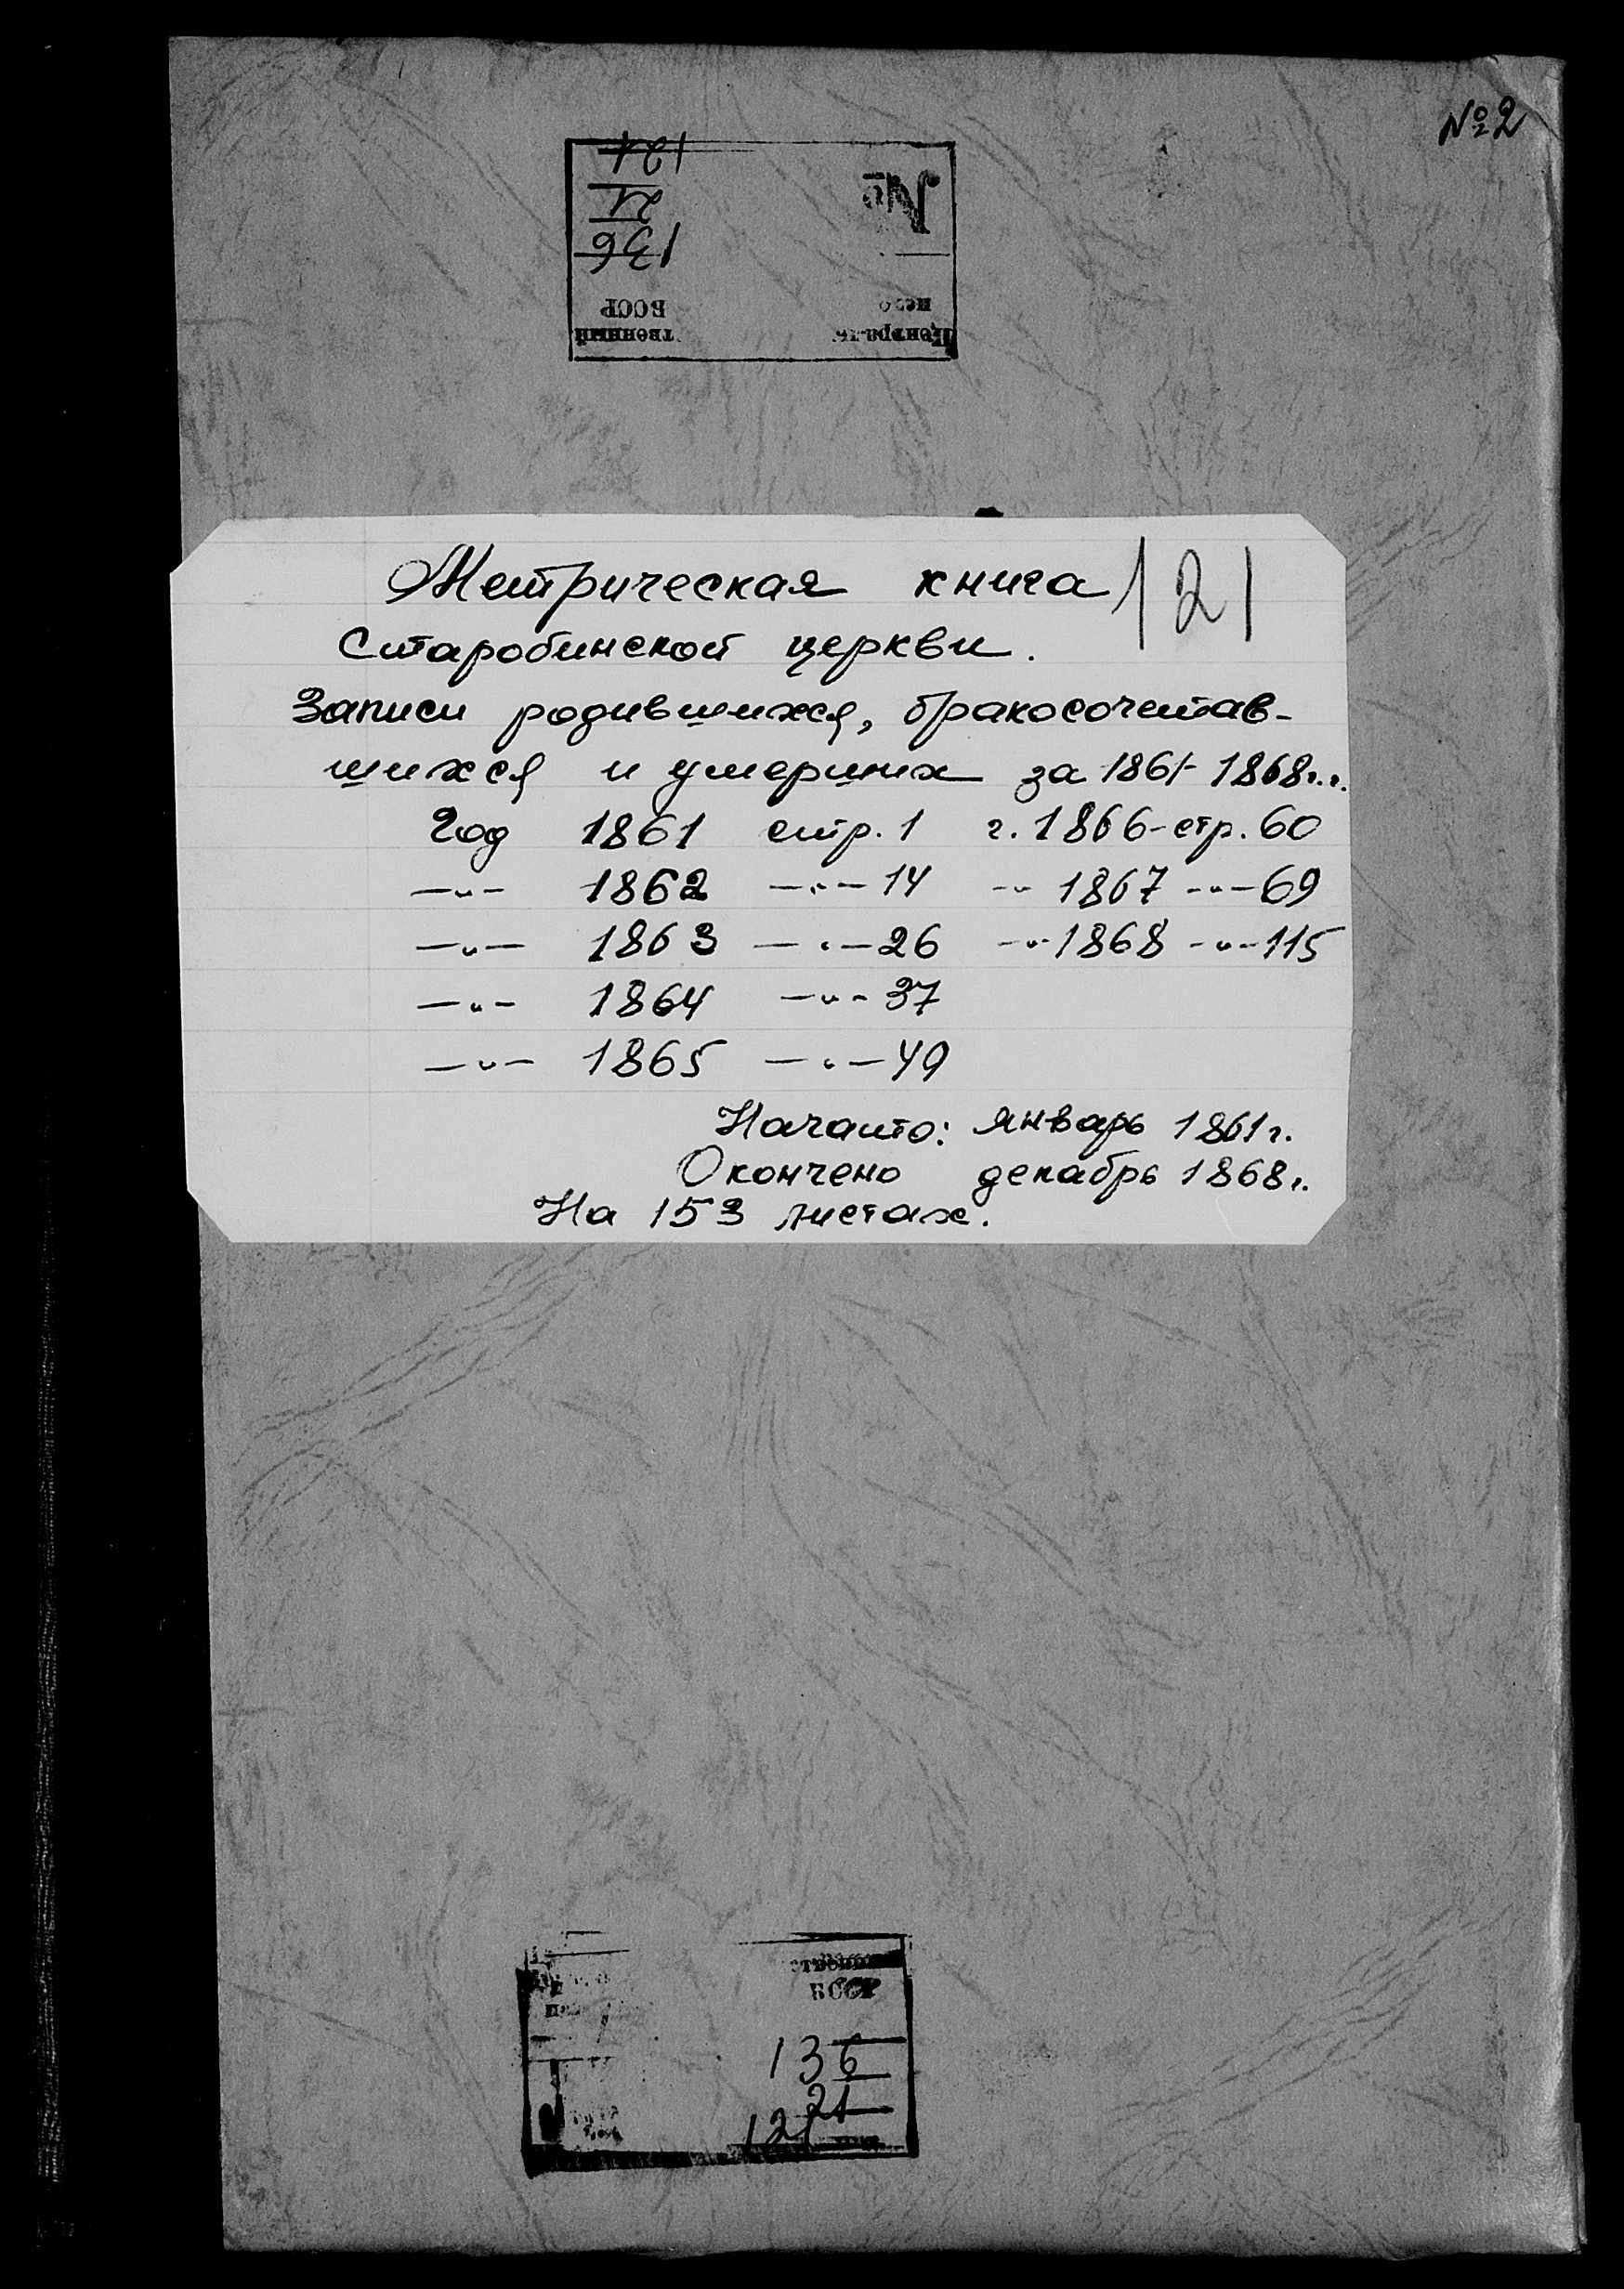 №2
121
21
136
№
БССР
твенный
Метрическая книга 121
Старобинской церкви.
Записи родившихся, бракосочетав-
шихся и умерших за 1861-1868г.г.
Год 1861 стр. 1 г. 1866-стр. 60
—"— 1862 —"—14 -"- 1867 -"-69
—"— 1863 —"—26 -"-1868 -"-115
—"— 1864 —"—37
—"— 1865 —"—49
Начато: январь 1861г.
Окончено декабрь 1868г.
На 153 листах.
БССР
136
21
121